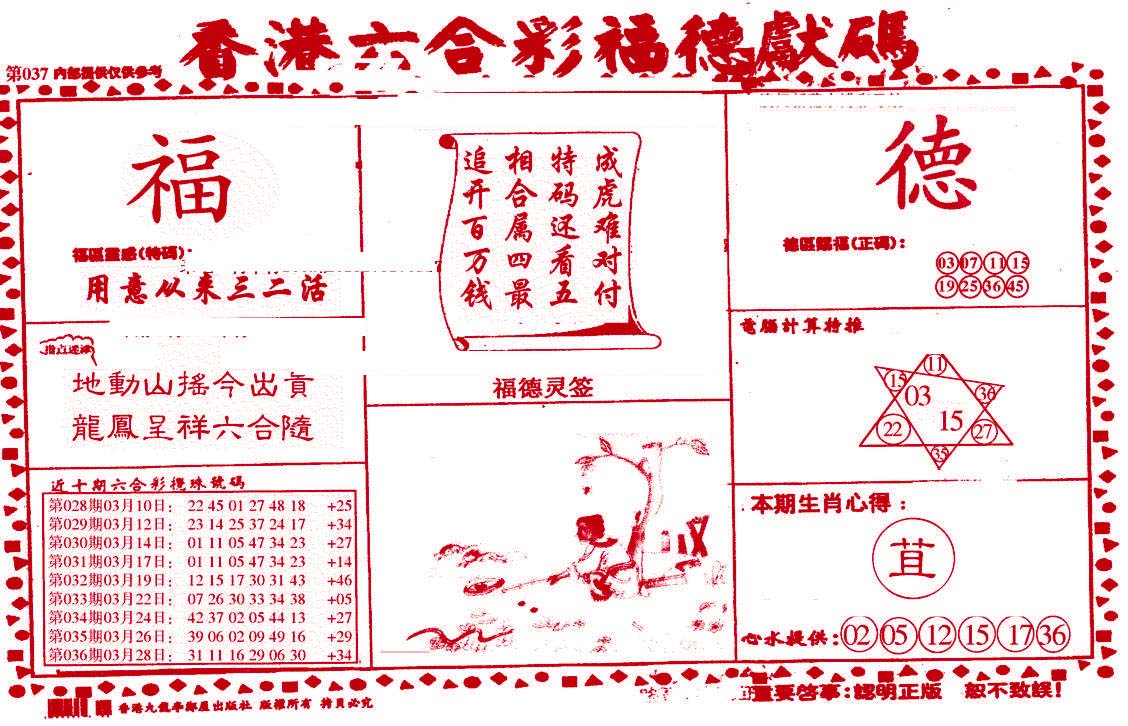 香港六合彩福德獻碼
第037 内部提供仅供参考
福
福區靈感(特碼):
用意从来三二活
指点迷津
地動山搖今出貢
龍鳳呈祥六合隨
近十期六合彩攪珠號碼
第028期03月10日: 22 45 01 27 48 18 +25
第029期03月12日: 23 14 25 37 24 17 +34
第030期03月14日: 01 11 05 47 34 23 +27
第031期03月17日: 01 11 05 47 34 23 +14
第032期03月19日: 12 15 17 30 31 43 +46
第033期03月22日: 07 26 30 33 34 38 +05
第034期03月24日: 42 37 02 05 44 13 +27
第035期03月26日: 39 06 02 09 49 16 +29
第036期03月28日: 31 11 16 29 06 30 +34
成虎难对付
特码还看五
相合属四最
追开百万钱
福德灵签
德
德區賜福(正碼):
03 07 11 15
19 25 36 45
電腦計算特推
11
15 36
03
15
22 27
35
本期生肖心得:
苴
心水提供: 02 05 12 15 17 36
香港九龍 出版社 版權所有 拷貝必究
重要啓事:認明正版 恕不致誤!